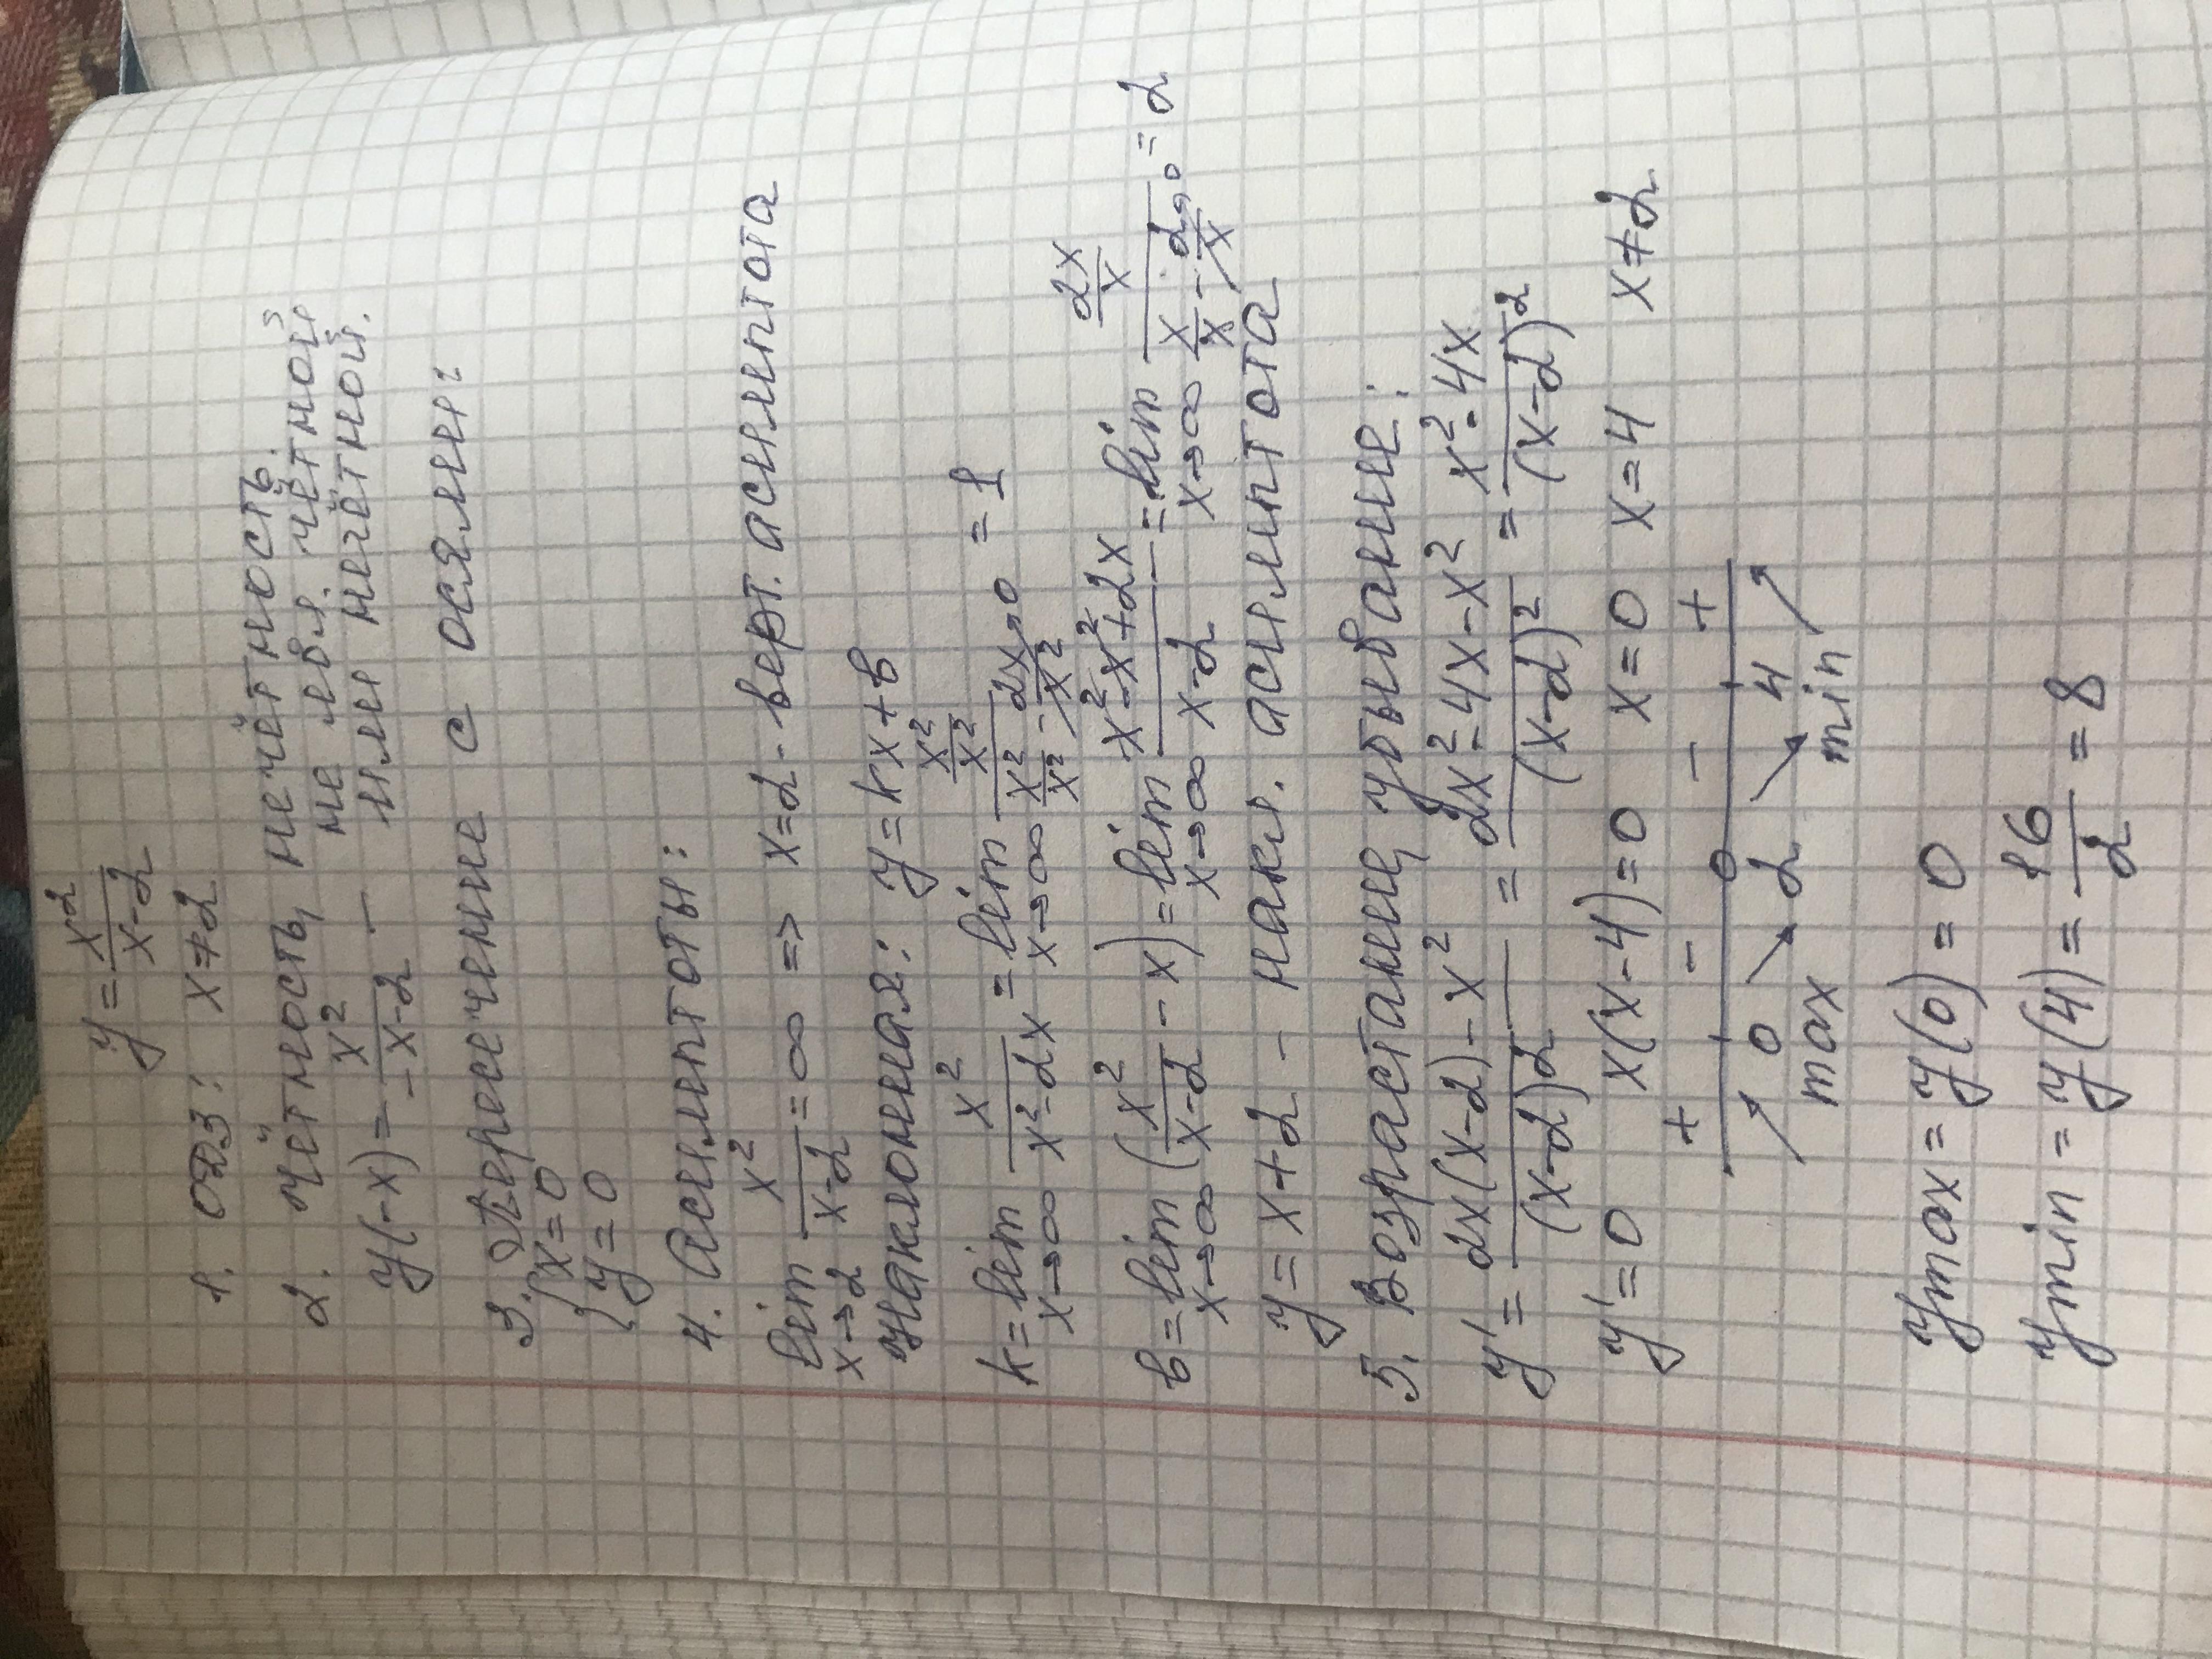 y = x²/(x-2)
1. ОДЗ: x ≠ 2
2. чётность, нечётность.
y(-x) = x²/(-x-2) - не явл. чётной
или нечётной.
3. Пересечение с осями:
{x=0
{y=0
4. Асимптоты:
lim x→2 x²/(x-2) = ∞ => x=2 - верт. асимптота
Наклонная: y = kx + b
k = lim x→∞ x²/(x²-2x) = lim x→∞ (x²/x²)/(x²/x² - 2x/x² →0) = 1
b = lim x→∞ (x²/(x-2) - x) = lim x→∞ (x²-x²+2x)/(x-2) = lim x→∞ (2x/x)/(x/x - 2/x →0) = 2
y = x+2 - накл. асимптота
5. Возрастание, убывание:
y' = (2x(x-2)-x²)/(x-2)² = (2x²-4x-x²)/(x-2)² = (x²-4x)/(x-2)²
y'=0 x(x-4)=0 x=0 x=4 x≠2
+ - - +
0 2 4
max min
ymax = y(0) = 0
ymin = y(4) = 16/2 = 8